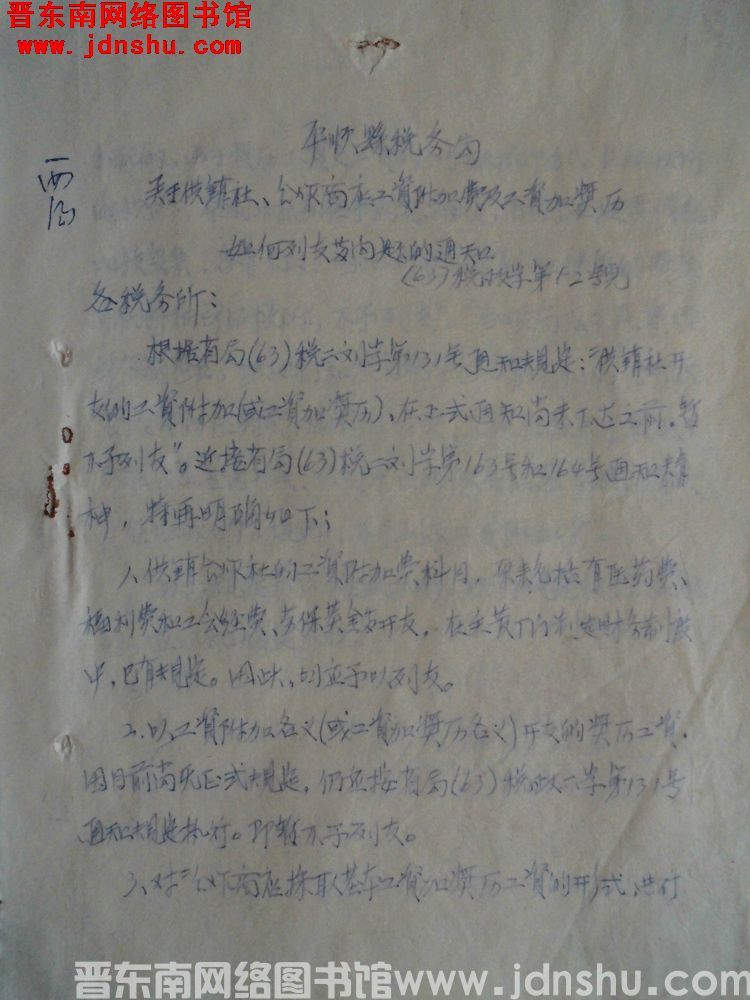 晋东南网络图书馆
www.jdnshu.com
平顺县税务局
关于供销社、合作商店工资附加费及工资加奖历
如何列支等问题的通知
(63)税政字第52号
各税务所：
根据省局(63)税二刘字第131号通知规定："供销社开
支的工资附加(或工资加奖历)，在正式通知尚未下达之前，暂
不予列支"。近接省局(63)税二刘字第163号和164号通知精
神，特再明确如下：
1、供销合作社的工资附加费科目，原来包括有医药费、
福利费和工会经费、劳保基金等开支，在主管部门制定财务制度
中，已有规定。因此，均应予以列支。
2、以工资附加名义(或工资加奖历名义)开支的奖历工资，
因目前尚无正式规定，仍应按省局(63)税政二字第131号
通知规定执行。即暂不予列支。
3、对合作商店採取"基本工资加奖历工资"的形式，进行
晋东南网络图书馆www.jdnshu.com